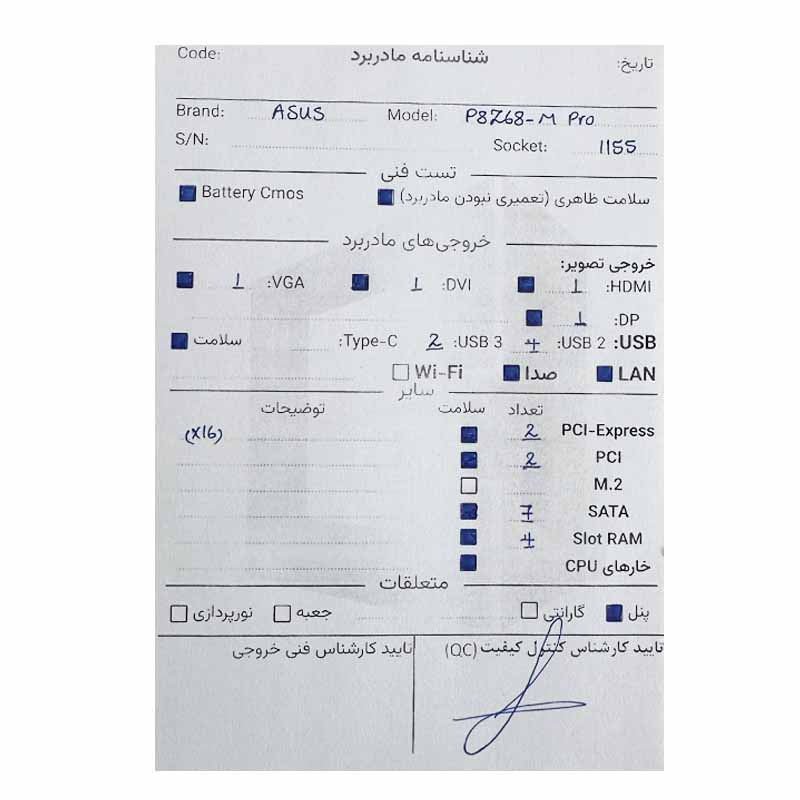 Code: شناسنامه مادربرد تاریخ:
Brand: ASUS Model: P8Z68-M Pro
S/N: Socket: 1155
تست فنی
سلامت ظاهری (تعمیری نبودن مادربرد) Battery Cmos
خروجی‌های مادربرد
خروجی تصویر:
HDMI: 1 DVI: 1 VGA: 1
DP: 1
USB: USB 2: 4 USB 3: 2 Type-C: سلامت
LAN صدا Wi-Fi
سایر
تعداد سلامت توضیحات
PCI-Express 2 (X16)
PCI 2
M.2
SATA 7
Slot RAM 4
خارهای CPU
متعلقات
پنل گارانتی جعبه نورپردازی
تایید کارشناس کنترل کیفیت (QC) تایید کارشناس فنی خروجی